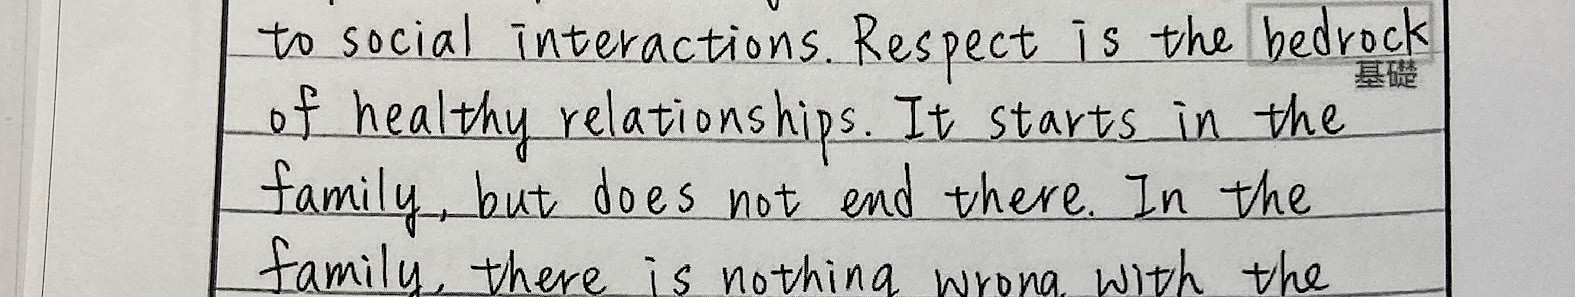 to social interactions. Respect is the bedrock
基礎
of healthy relationships. It starts in the
family, but does not end there. In the
family, there is nothing wrong with the